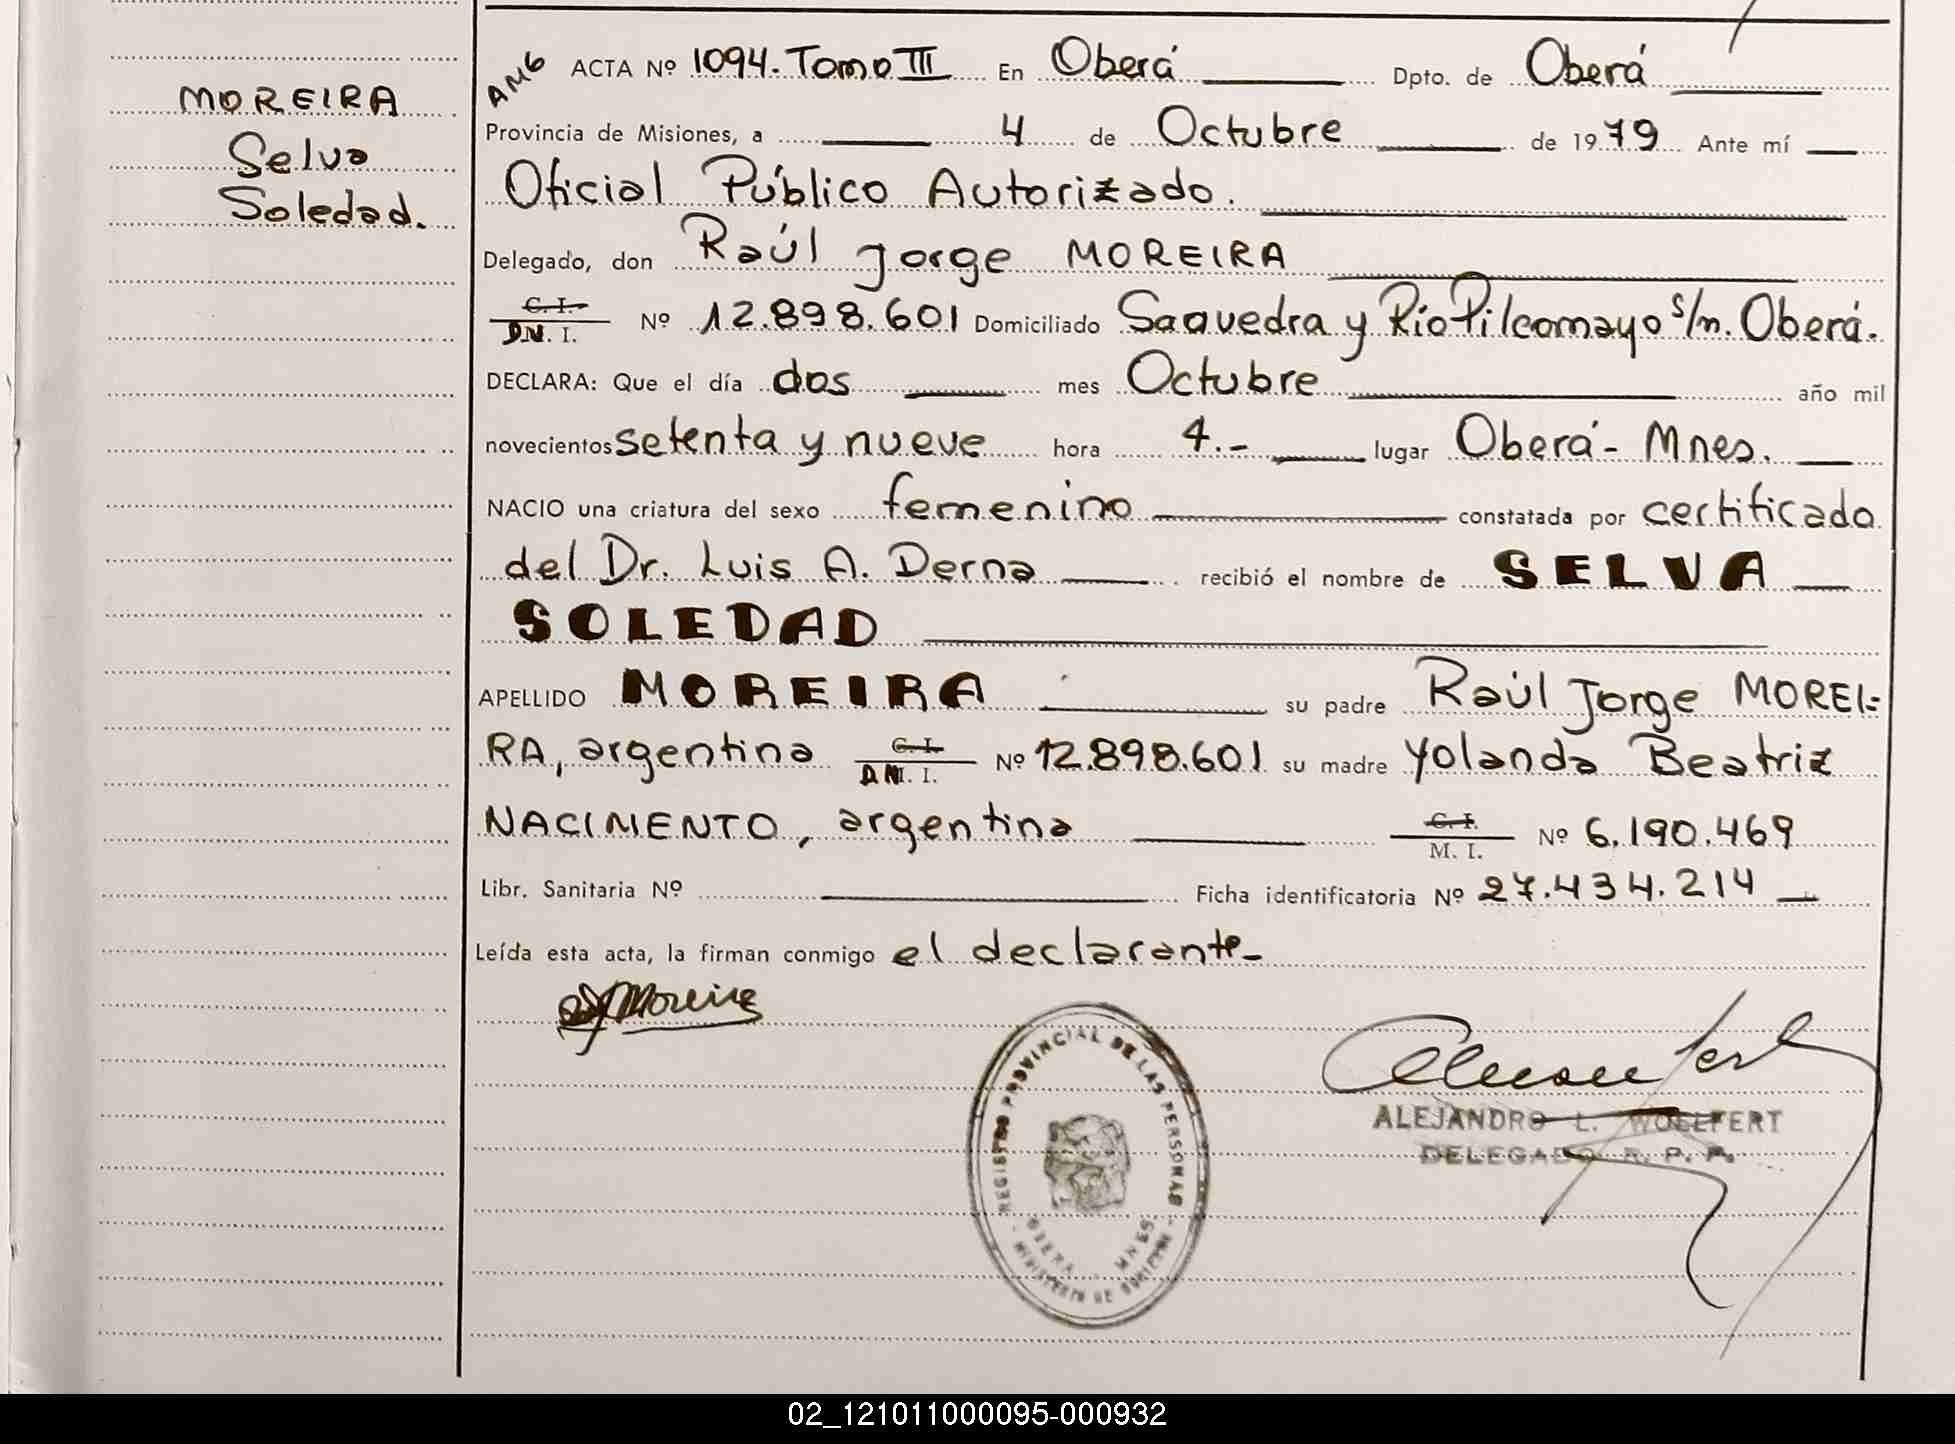 MOREIRA
Selva
Soledad.
AM6 ACTA Nº 1094. Tomo III En Oberá Dpto. de Oberá
Provincia de Misiones, a 4 de Octubre de 1979 Ante mí
Oficial Público Autorizado.
Delegado, don Raúl Jorge MOREIRA
C. I.
D.N. I. Nº 12.898.601 Domiciliado Saavedra y Río Pilcomayo s/n. Oberá.
DECLARA: Que el día dos mes Octubre año mil
novecientos setenta y nueve hora 4.- lugar Oberá- Mnes.
NACIO una criatura del sexo femenino constatada por certificado
del Dr. Luis A. Derna recibió el nombre de SELVA
SOLEDAD
APELLIDO MOREIRA su padre Raúl Jorge MOREI-
RA, argentina C. I. D.N. I. Nº 12.898.601 su madre Yolanda Beatriz
NACIMENTO, argentina C. I. M. I. Nº 6.190.469
Libr. Sanitaria Nº Ficha identificatoria Nº 27.434.214
Leída esta acta, la firman conmigo el declarante-
Moreira
REGISTRO PROVINCIAL DE LAS PERSONAS
OBERA - MNES
MINISTERIO DE GOBIERNO
ALEJANDRO L. WOELFERT
DELEGADO R. P. P.
02_121011000095-000932